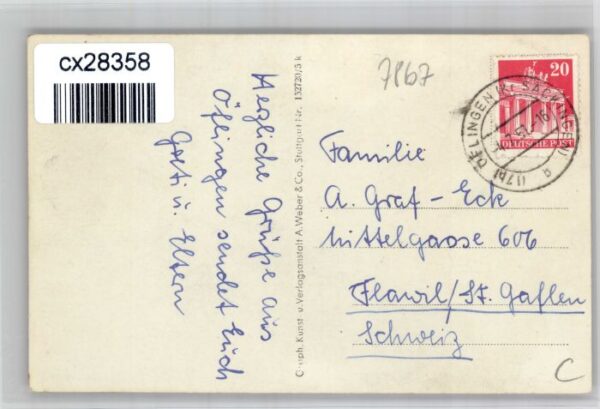 cx28358
7867
20
DEUTSCHE POST
(17b) ÖFLINGEN (Kr. SÄCKINGEN)
a
Herzliche Grüße aus
Öflingen sendet Euch
Gerti u. Eltern
Kunst u. Verlagsanstalt A. Weber & Co., Stuttgart Nr. 132720/3 k
Familie
A. Graf-Eck
Mittelgasse 606
Flawil/St. Gallen
Schweiz
C